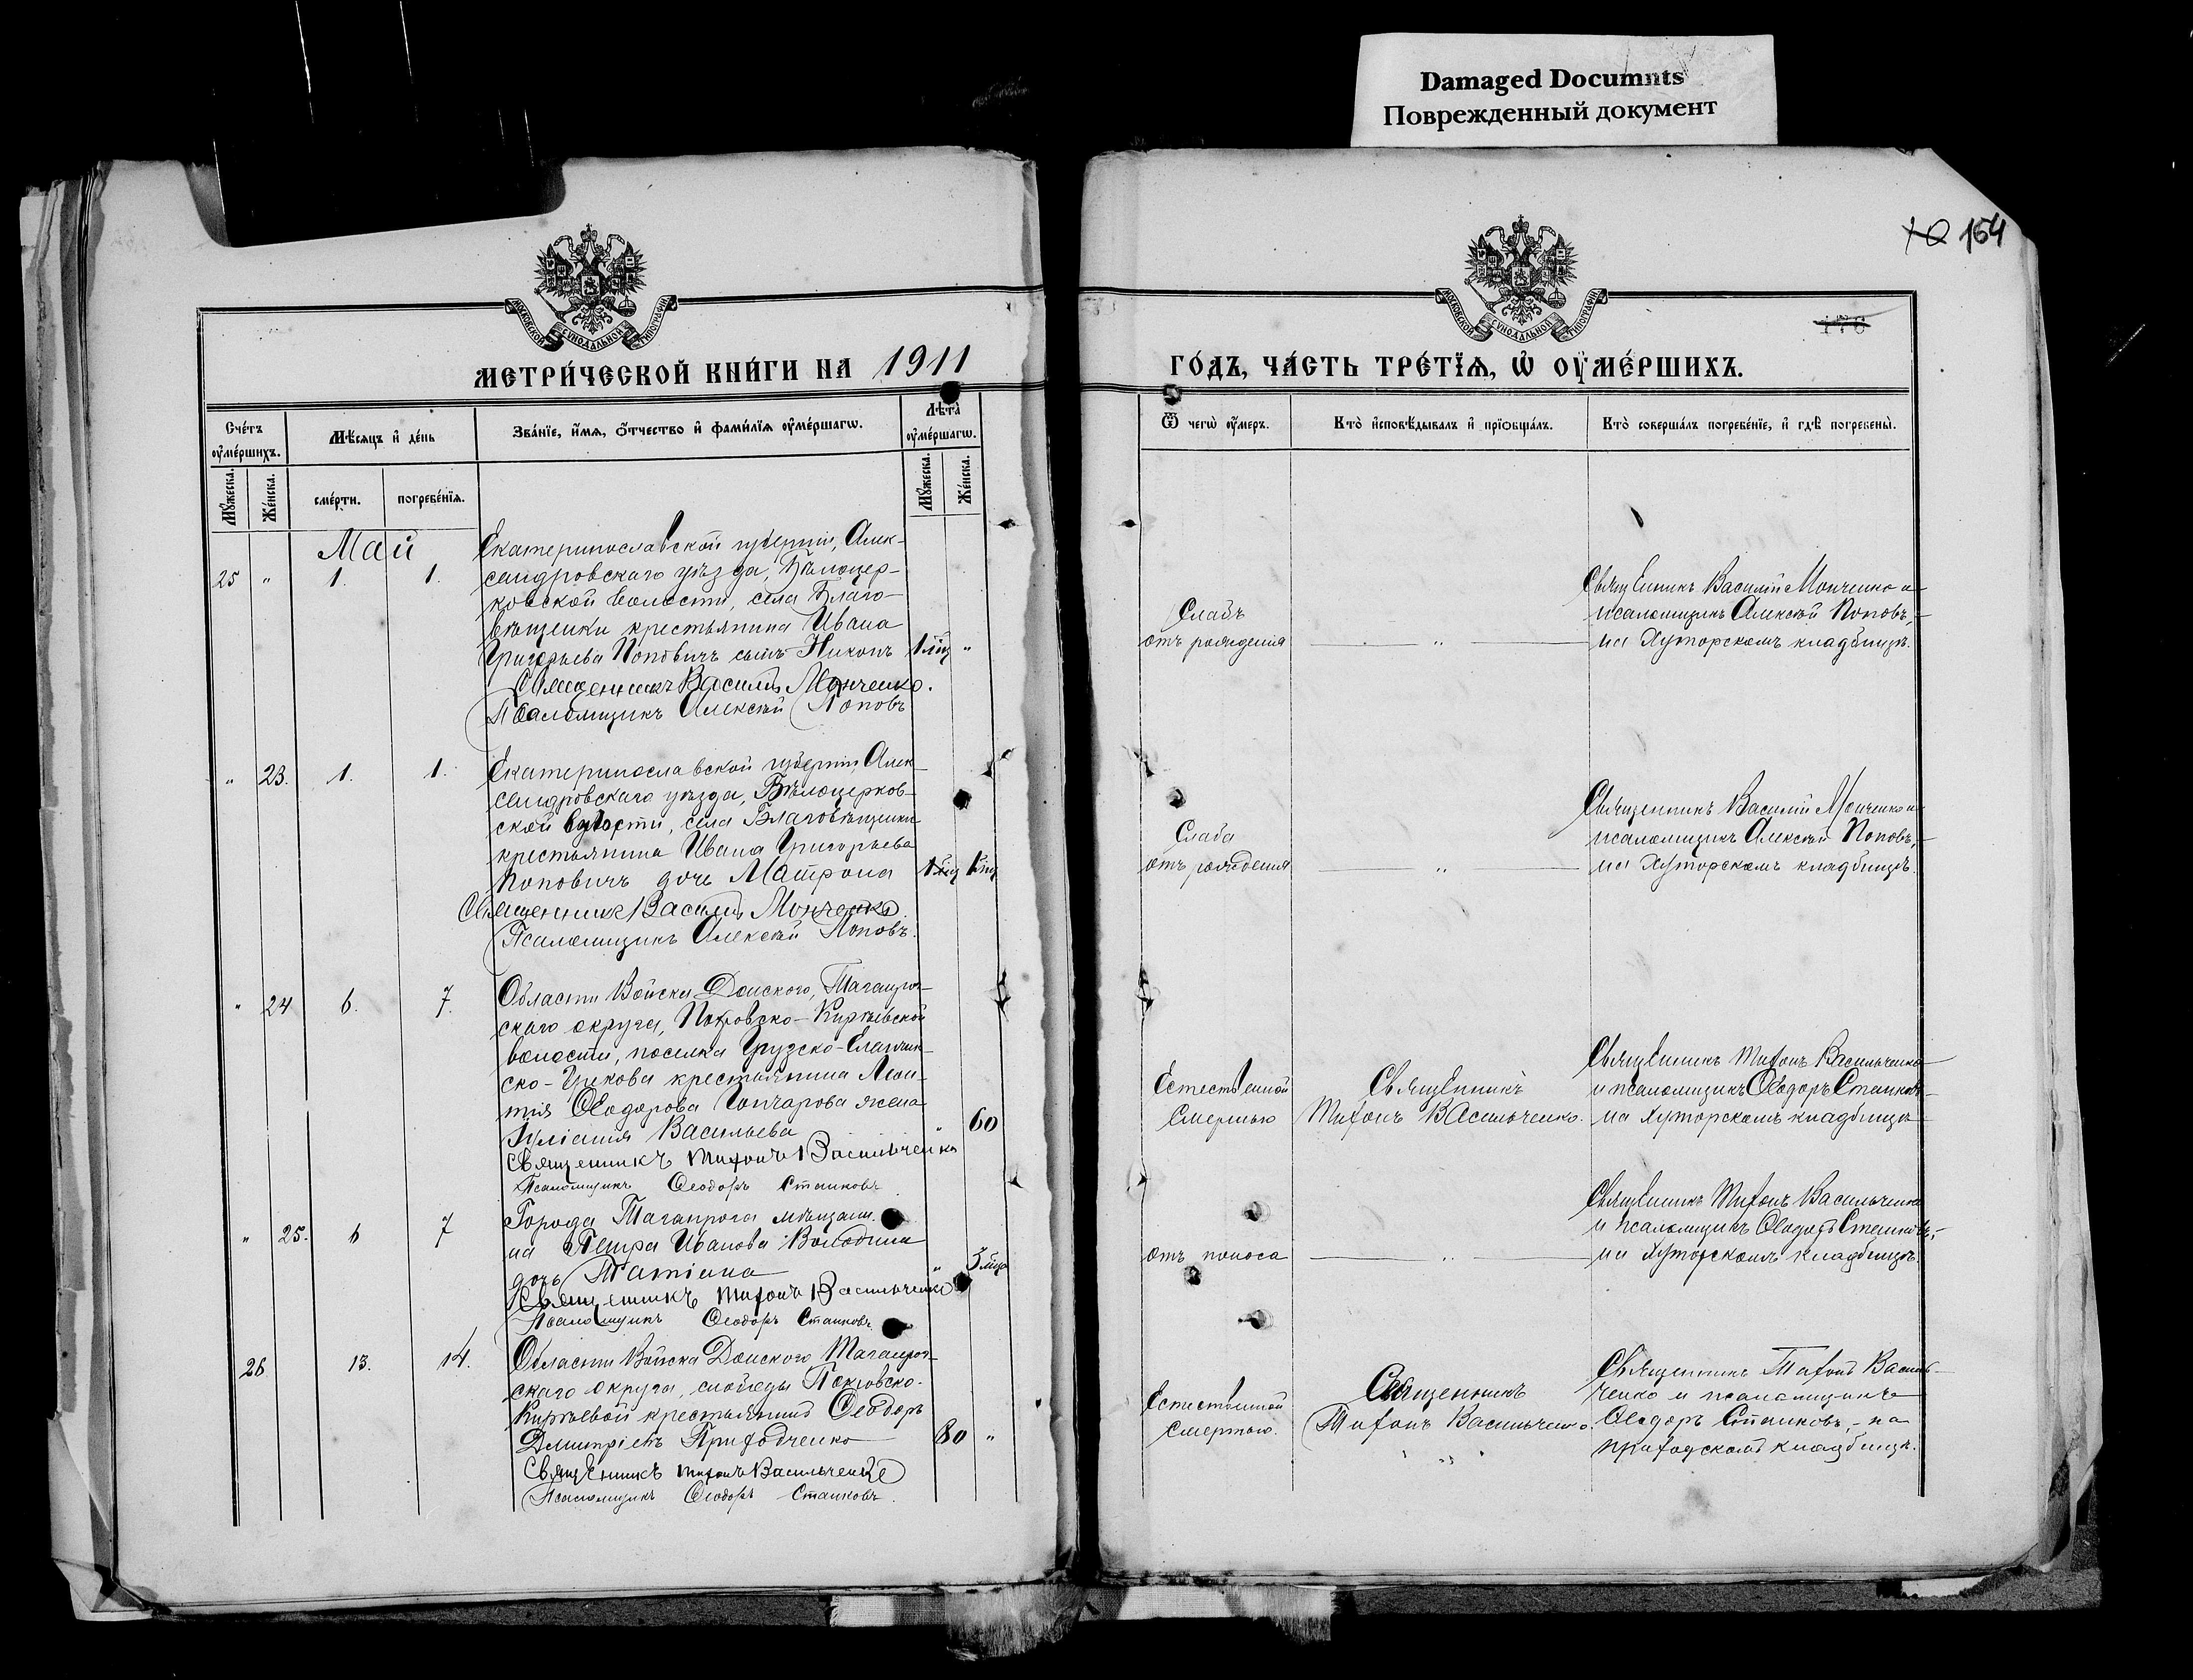 Damaged Documnts
Поврежденный документ
164
176
МОСКОВСКОЙ СѴНОДАЛЬНОЙ ТИПОГРАФІИ
МОСКОВСКОЙ СѴНОДАЛЬНОЙ ТИПОГРАФІИ
МЕТРИ́ЧЕСКОЙ КНИ́ГИ НА 1911
ГО́ДЪ, ЧА́СТЬ ТРЕ́ТЇѦ, Ѡ҆ ОУ҆МЕ́РШИХЪ.
Сче́тъ оу҆ме́ршихъ.
Мꙋ́жеска.
Же́нска.
Мѣ́сѧцъ и҆ де́нь
сме́рти.
погребе́нїѧ.
Зва́нїе, и҆́мѧ, ѻ҆́тчество и҆ фами́лїѧ оу҆ме́ршагѡ.
Лѣ́та оу҆ме́ршагѡ.
Мꙋ́жеска.
Же́нска.
Ѿ чегѡ̀ оу҆́меръ.
Кто̀ и҆сповѣ́дывалъ и҆ прїѡбща́лъ.
Кто̀ соверша́лъ погребе́нїе, и҆ гдѣ̀ погребены̀.
Май
25 " 1. 1.
Екатеринославской губерніи, Алек-
сандровскаго уѣзда, Бѣлоцер-
ковской волости, села Благо-
вѣщенки крестьянина Ивана
Григорьева Поповичъ сынъ Никонъ
Священникъ Василій Монченко.
Псаломщикъ Алексѣй Поповъ
Слабъ
отъ рожденія
"
Священникъ Василій Монченко и
псаломщикъ Алексѣй Поповъ,-
на Хуторскомъ кладбищѣ.
" 23. 1. 1.
Екатеринославской губерніи, Алек-
сандровскаго уѣзда, Бѣлоцерков-
ской волости, села Благовѣщенки
крестьянина Ивана Григорьева
Поповичъ дочь Матрона
Священникъ Василій Мончепко
Псаломщикъ Алексѣй Поповъ.
Слаба
отъ рожденія
"
Священникъ Василій Монченко и
псаломщикъ Алексѣй Поповъ,-
на Хуторскомъ кладбищѣ.
" 24 6. 7.
Области Войска Донского, Таганрог-
скаго округа, Покровско-Кирѣевской
волости, поселка Грузско-Еланчик-
ско-Грекова крестьянина Леон-
тія Ѳеодорова Гончарова жена
Іуліанія Васильева " 60
Священникъ Тихонъ Васильченко
Псаломщикъ Ѳеодоръ Станковъ
Естественной
смертью
Священникъ
Тихонъ Васильченко.
Священникъ Тихонъ Васильченко
и псаломщикъ Ѳеодоръ Станковъ-
на хуторскомъ кладбищѣ
" 25. 6 7
Города Таганрога мѣщани-
на Петра Иванова Володина
дочь Татіана "
Священникъ Тихонъ Васильченко
Псаломщикъ Ѳеодоръ Станковъ
отъ поноса
"
Священникъ Тихонъ Васильченко
и псаломщикъ Ѳеодоръ Станковъ,-
на Хуторскомъ кладбищѣ.
26 13. 14.
Области Войска Донского Таганрог-
скаго округа, слободы Покровско-
Кирѣевой крестьянинъ Ѳеодоръ
Димитріевъ Приходченко 80 "
Священникъ Тихонъ Васильченко
Псаломщикъ Ѳеодоръ Станковъ.
Естественной
смертью.
Священникъ
Тихонъ Васильченко.
Священникъ Тихонъ Василь-
ченко и псаломщикъ
Ѳеодоръ Станковъ,- на
приходскомъ кладбищѣ.